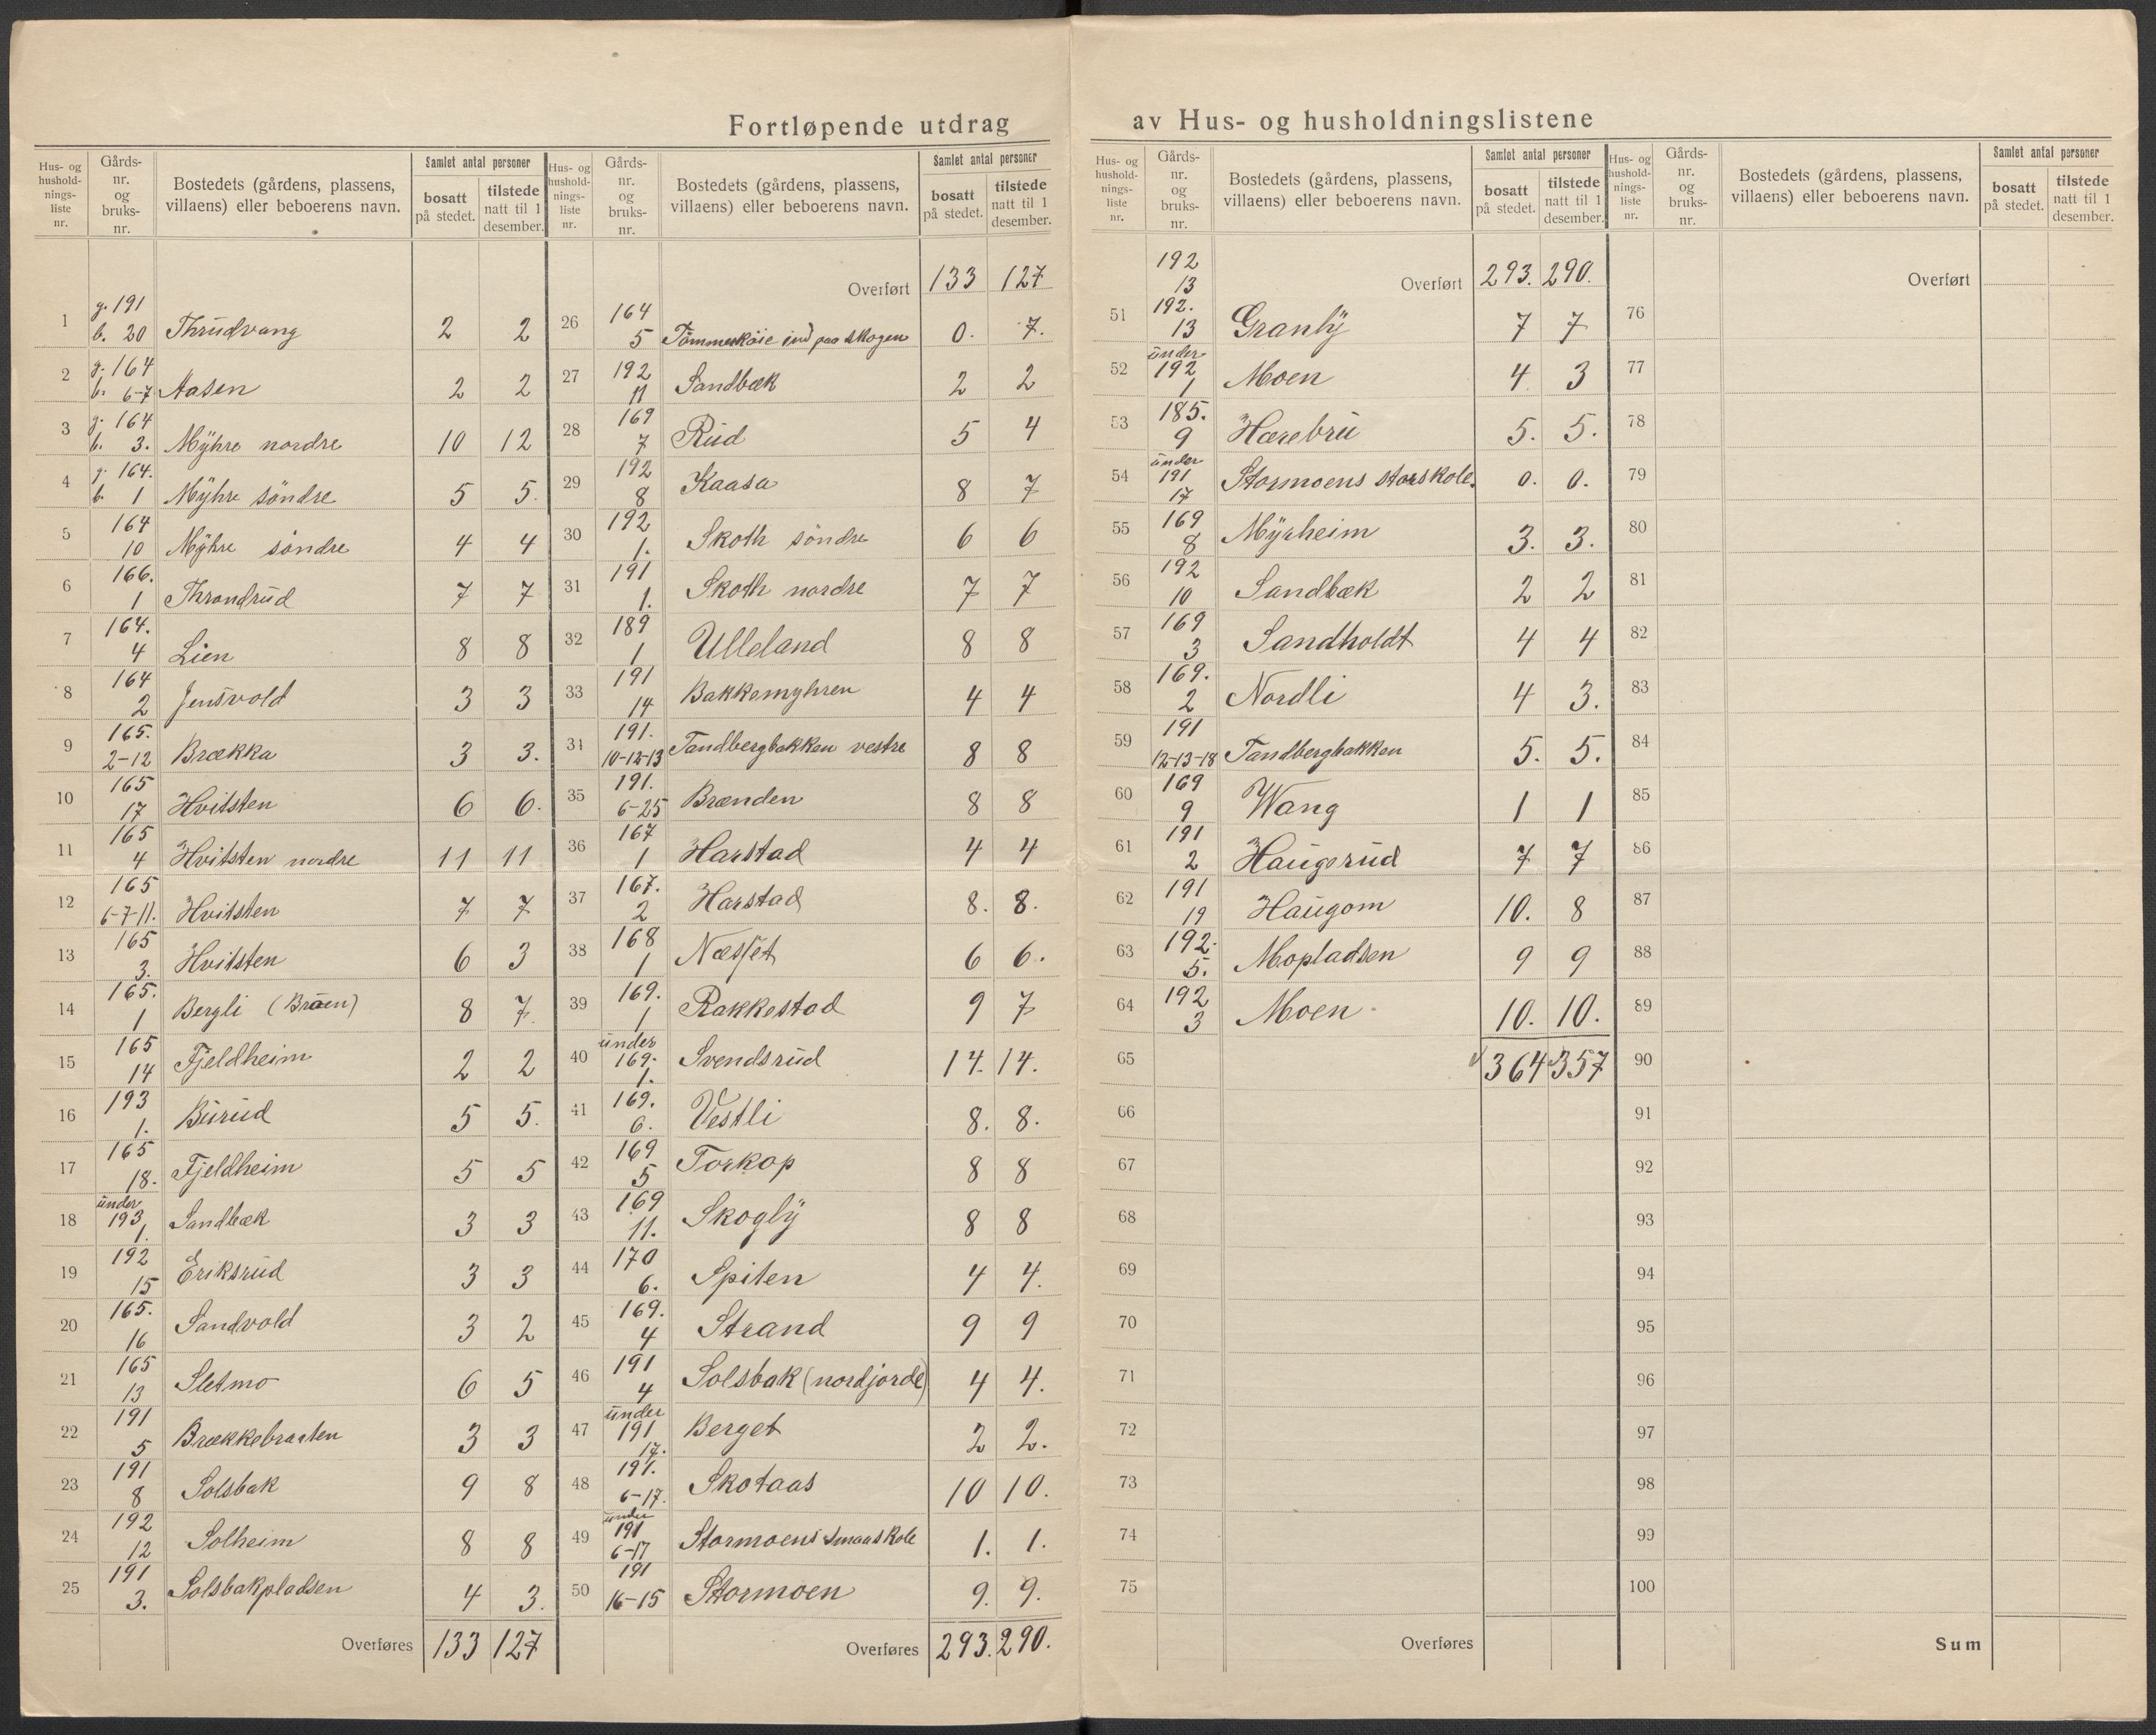 Fortløpende utdrag av Hus- og husholdningslistene
Hus- og husholdnings-liste nr. | Gårds-nr. og bruks-nr. | Bostedets (gårdens, plassens, villaens) eller beboerens navn. | Samlet antal personer: bosatt på stedet. | tilstede natt til 1 desember.
1 | g. 191 b. 20 | Thrudvang | 2 | 2
2 | g. 164 b. 6-7 | Aasen | 2 | 2
3 | g. 164 b. 3. | Myhre nordre | 10 | 12
4 | g. 164. b. 1 | Myhre søndre | 5 | 5.
5 | 164 10 | Myhre søndre | 4 | 4
6 | 166. 1 | Throndrud | 7 | 7
7 | 164. 4 | Lien | 8 | 8
8 | 164 2 | Jensvold | 3 | 3
9 | 165. 2-12 | Brækka | 3 | 3.
10 | 165 17 | Hvitsten | 6 | 6.
11 | 165 4 | Hvitsten nordre | 11 | 11
12 | 165 6-7-11. | Hvitsten | 7 | 7
13 | 165 3. | Hvitsten | 6 | 3
14 | 165. 1 | Bergli (Bråen) | 8 | 7.
15 | 165 14 | Fjeldheim | 2 | 2
16 | 193 1. | Burud | 5 | 5.
17 | 165 18. | Fjeldheim | 5 | 5
18 | under 193 1. | Sandbæk | 3 | 3
19 | 192 15 | Eriksrud | 3 | 3
20 | 165. 16 | Sandvold | 3 | 2
21 | 165 13 | Sletmo | 6 | 5
22 | 191 5 | Brækkebraaten | 3 | 3
23 | 191 8 | Solsbak | 9 | 8
24 | 192 12 | Solheim | 8 | 8
25 | 191 3. | Solsbakpladsen | 4 | 3.
Overføres | 133 | 127
Hus- og husholdnings-liste nr. | Gårds-nr. og bruks-nr. | Bostedets (gårdens, plassens, villaens) eller beboerens navn. | Samlet antal personer: bosatt på stedet. | tilstede natt til 1 desember.
Overført | 133 | 127
26 | 164 5 | Tømmerkøie ind paa skogen | 0. | 7.
27 | 192 11 | Sandbæk | 2 | 2
28 | 169 7 | Rud | 5 | 4
29 | 192 8 | Kaasa | 8 | 7
30 | 192 1. | Skoth søndre | 6 | 6
31 | 191 1. | Skoth nordre | 7 | 7
32 | 189 1 | Ulleland | 8 | 8
33 | 191 14 | Bakkemyhren | 4 | 4
34 | 191. 10-12-13 | Tandbergbakken vestre | 8 | 8
35 | 191. 6-25 | Brænden | 8 | 8
36 | 167 1 | Harstad | 4 | 4
37 | 167. 2 | Harstad | 8. | 8.
38 | 168 1 | Næsset | 6 | 6.
39 | 169. 1 | Rakkestad | 9 | 7
40 | under 169. 1. | Svendsrud | 14. | 14.
41 | 169. 6. | Vestli | 8. | 8.
42 | 169 5 | Torkop | 8 | 8
43 | 169 11. | Skogly | 8 | 8
44 | 170 6. | Spiten | 4 | 4.
45 | 169. 4 | Strand | 9 | 9
46 | 191 4 | Solsbak (nordjorde) | 4 | 4.
47 | under 191 17. | Berget | 2 | 2.
48 | 191. 6-17. | Skotaas | 10 | 10.
49 | under 191 6-17 | Stormoens smaaskole | 1. | 1.
50 | 191 16-15 | Stormoen | 9. | 9.
Overføres | 293. | 290.
Hus- og husholdnings-liste nr. | Gårds-nr. og bruks-nr. | Bostedets (gårdens, plassens, villaens) eller beboerens navn. | Samlet antal personer: bosatt på stedet. | tilstede natt til 1 desember.
192 13 | Overført | 293. | 290.
51 | 192. 13 | Granly | 7 | 7
52 | under 192 1 | Moen | 4 | 3
53 | 185. 9 | Hærebru | 5. | 5.
54 | under 191 17 | Stormoens storskole. | 0. | 0.
55 | 169 8 | Myrheim | 3. | 3.
56 | 192 10 | Sandbæk | 2 | 2
57 | 169 3 | Sandholdt | 4 | 4
58 | 169. 2 | Nordli | 4 | 3.
59 | 191 12-13-18 | Tandbergbakken | 5. | 5.
60 | 169 9 | Wang | 1 | 1
61 | 191 2 | Haugerud | 7 | 7
62 | 191 19 | Haugom | 10. | 8
63 | 192. 5. | Mopladsen | 9 | 9
64 | 192 3 | Moen | 10. | 10.
65 | 364 | 357
66
67
68
69
70
71
72
73
74
75
Overføres
Hus- og husholdnings-liste nr. | Gårds-nr. og bruks-nr. | Bostedets (gårdens, plassens, villaens) eller beboerens navn. | Samlet antal personer: bosatt på stedet. | tilstede natt til 1 desember.
Overført
76
77
78
79
80
81
82
83
84
85
86
87
88
89
90
91
92
93
94
95
96
97
98
99
100
Sum